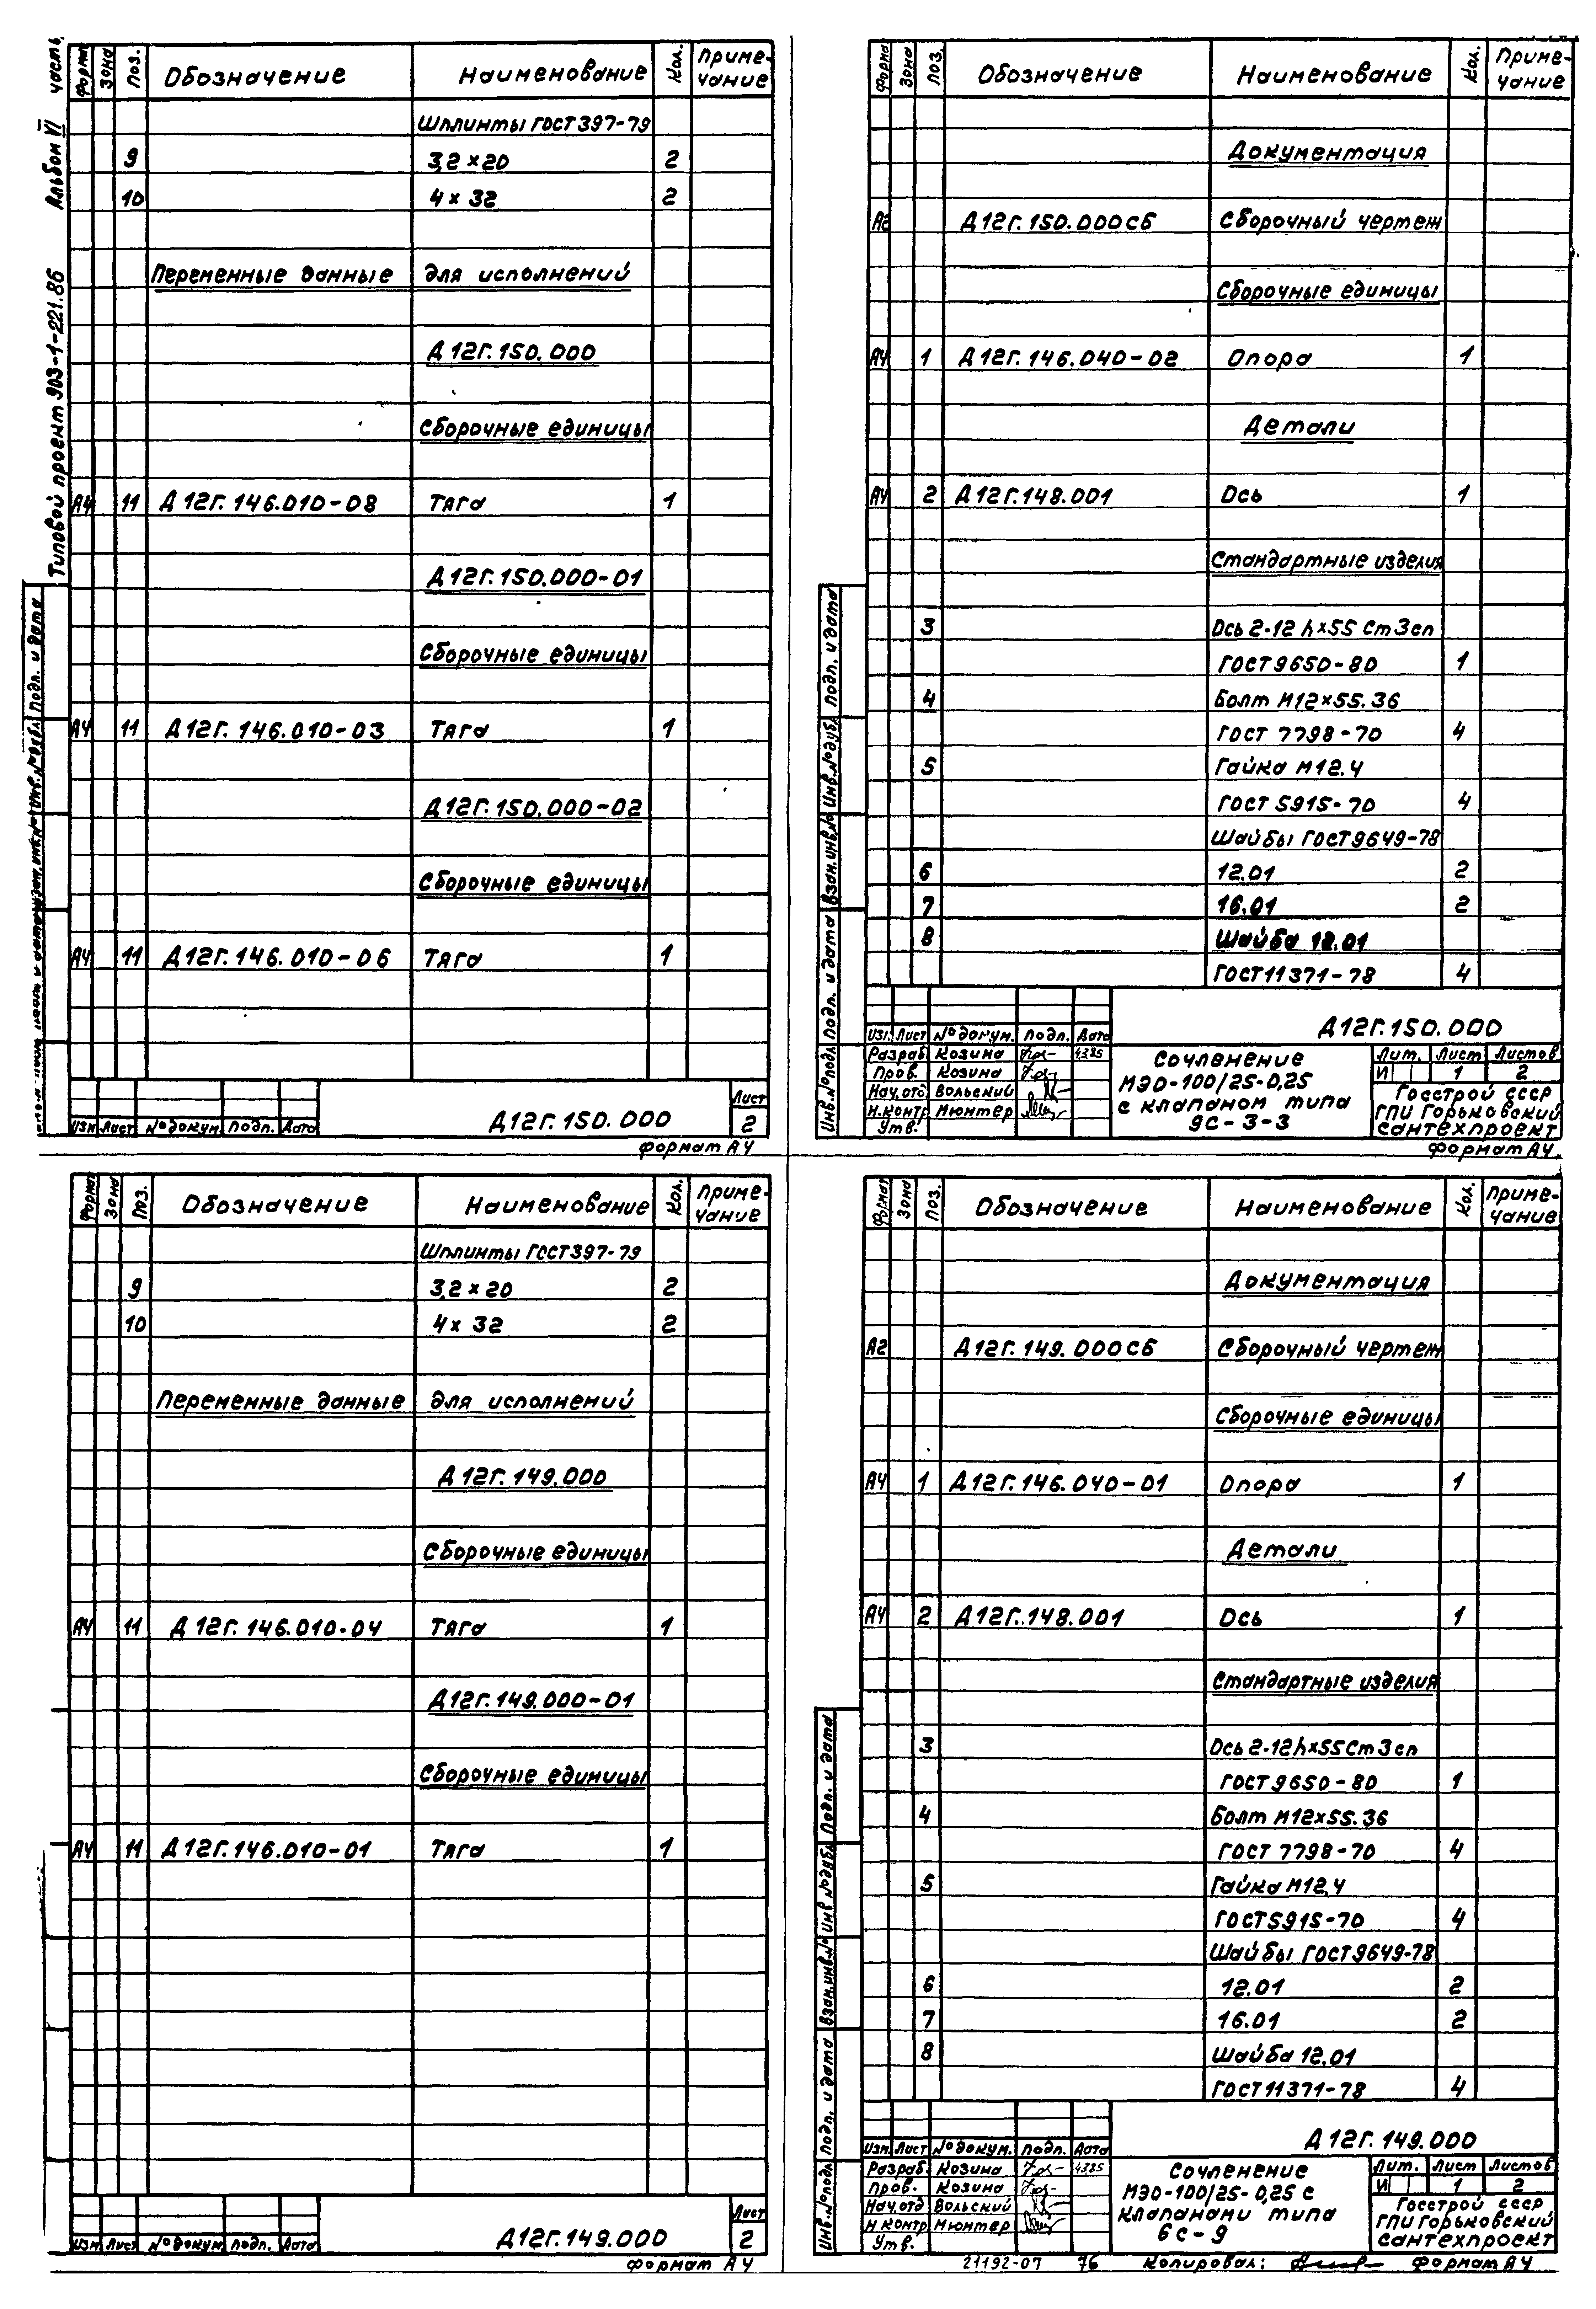 Типовой проект 903-1-221.86 Альбом VI часть
Форма Зона Поз. Обозначение Наименование Кол. Приме-
чание
Шплинты ГОСТ 397-79
9 3,2 × 20 2
10 4 × 32 2
Переменные данные для исполнений
Д12Г.150.000
Сборочные единицы
А4 11 Д12Г.146.010-08 Тяга 1
Д12Г.150.000-01
Сборочные единицы
А4 11 Д12Г.146.010-03 Тяга 1
Д12Г.150.000-02
Сборочные единицы
А4 11 Д12Г.146.010-06 Тяга 1
Подп. и дата
Изм Лист № докум. Подп. Дата
Д12Г.150.000
Лист
2
Формат А4
Форма Зона Поз. Обозначение Наименование Кол. Приме-
чание
Документация
А2 Д12Г.150.000СБ Сборочный чертеж
Сборочные единицы
А4 1 Д12Г.146.040-02 Опора 1
Детали
А4 2 Д12Г.148.001 Ось 1
Стандартные изделия
3 Ось 2-12h×55 Ст3сп
ГОСТ 9650-80 1
4 Болт М12×55.36
ГОСТ 7798-70 4
5 Гайка М12.4
ГОСТ 5915-70 4
Шайбы ГОСТ 9649-78
6 12.01 2
7 16.01 2
8 Шайба 12.01
ГОСТ 11371-78 4
Инв.№ подл Подп. и дата Взам.инв.№ Инв.№ дубл Подп. и дата
Д12Г.150.000
Изм. Лист № докум. Подп. Дата
Разраб Козина 4.3.85
Пров. Козина
Нач.отд Вольский
Н.контр Мюнтер
Утв.
Сочленение
МЭО-100/25-0,25
с клапаном типа
9с-3-3
Лит. Лист Листов
И 1 2
Госстрой СССР
ГПИ Горьковский
сантехпроект
Формат А4
Формат Зона Поз. Обозначение Наименование Кол. Приме-
чание
Шплинты ГОСТ 397-79
9 3,2 × 20 2
10 4 × 32 2
Переменные данные для исполнений
Д12Г.149.000
Сборочные единицы
А4 11 Д12Г.146.010-04 Тяга 1
Д12Г.149.000-01
Сборочные единицы
А4 11 Д12Г.146.010-01 Тяга 1
Изм Лист № докум Подп. Дата
Д12Г.149.000
Лист
2
Формат А4
Формат Зона Поз. Обозначение Наименование Кол. Приме-
чание
Документация
А2 Д12Г.149.000СБ Сборочный чертеж
Сборочные единицы
А4 1 Д12Г.146.040-01 Опора 1
Детали
А4 2 Д12Г.148.001 Ось 1
Стандартные изделия
3 Ось 2-12h×55 Ст3сп
ГОСТ 9650-80 1
4 Болт М12×55.36
ГОСТ 7798-70 4
5 Гайка М12.4
ГОСТ 5915-70 4
Шайбы ГОСТ 9649-78
6 12.01 2
7 16.01 2
8 Шайба 12.01
ГОСТ 11371-78 4
Инв.№ подл Подп. и дата Взам.инв.№ Инв № дубл Подп. и дата
Д12Г.149.000
Изм. Лист № докум. Подп. Дата
Разраб. Козина 4.3.85
Пров. Козина
Нач.отд Вольский
Н контр Мюнтер
Утв.
Сочленение
МЭО-100/25-0,25 с
клапанами типа
6с-9
Лит. Лист Листов
И 1 2
Госстрой СССР
ГПИ Горьковский
сантехпроект
21192-07 76 Копировал: Формат А4